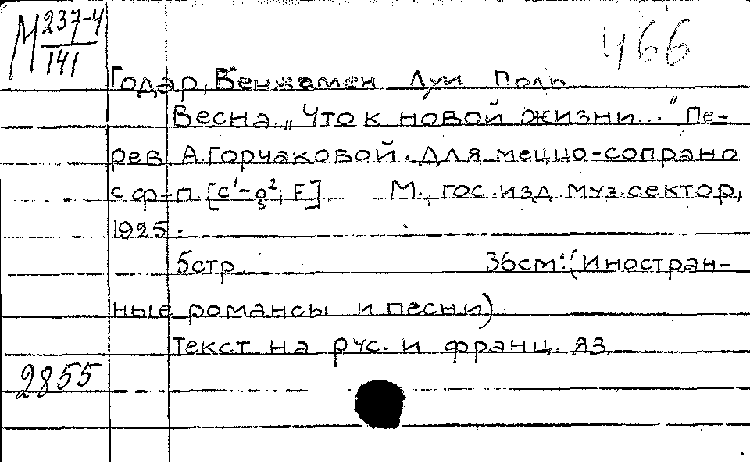 М 237-4
141
466
Годар, Бенжамен Луи Поль
Весна „Что к новой жизни..." Пе-
рев А.Горчаковой. Для меццо-сопрано
с ф-п. [c¹-g², F] М., гос. изд. муз.сектор,
1925.
5стр. 36см. (Иностран-
ные романсы и песни)
Текст на рус. и франц. яз
2855